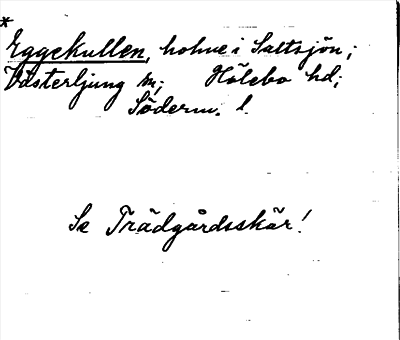 *
Eggekullen, holme i Saltsjön;
Västerljung sn; Hölebo hd;
Söderm. l.
Se Trädgårdsskär!